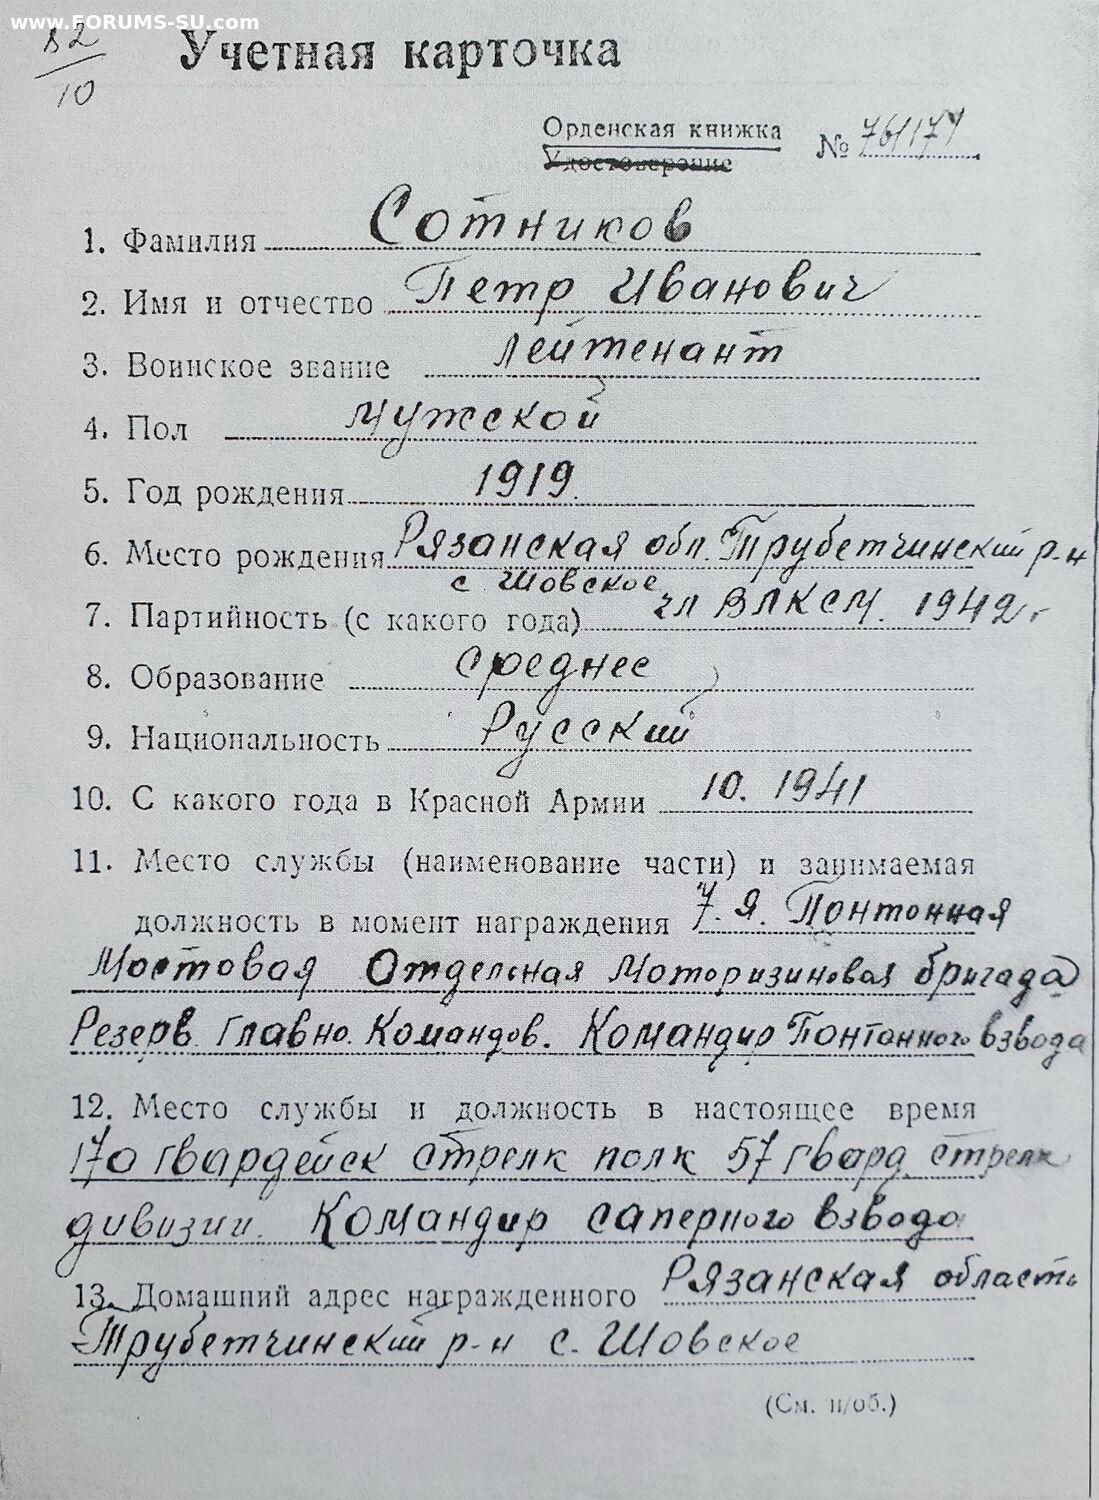 www.FORUMS-SU.com
82/10
Учетная карточка
Орденская книжка
Удостоверение
№
1. Фамилия Сотников
2. Имя и отчество Петр Иванович
3. Воинское звание Лейтенант
4. Пол Мужской
5. Год рождения 1919.
6. Место рождения Рязанская обл. Трубетчинский р-н
с. Шовское
7. Партийность (с какого года) чл ВЛКСМ. 1942г.
8. Образование среднее
9. Национальность Русский
10. С какого года в Красной Армии 10. 1941
11. Место службы (наименование части) и занимаемая
должность в момент награждения 7.я. Понтонная
Мостовая Отдельная Моторизиновая бригада
Резерв Главно. Командов. Командир Понтонного взвода
12. Место службы и должность в настоящее время
170 гвардейск стрелк полк 57 гвард. стрелк
дивизии. Командир саперного взвода
13. Домашний адрес награжденного Рязанская область
Трубетчинский р-н с. Шовское
(См. н/об.)